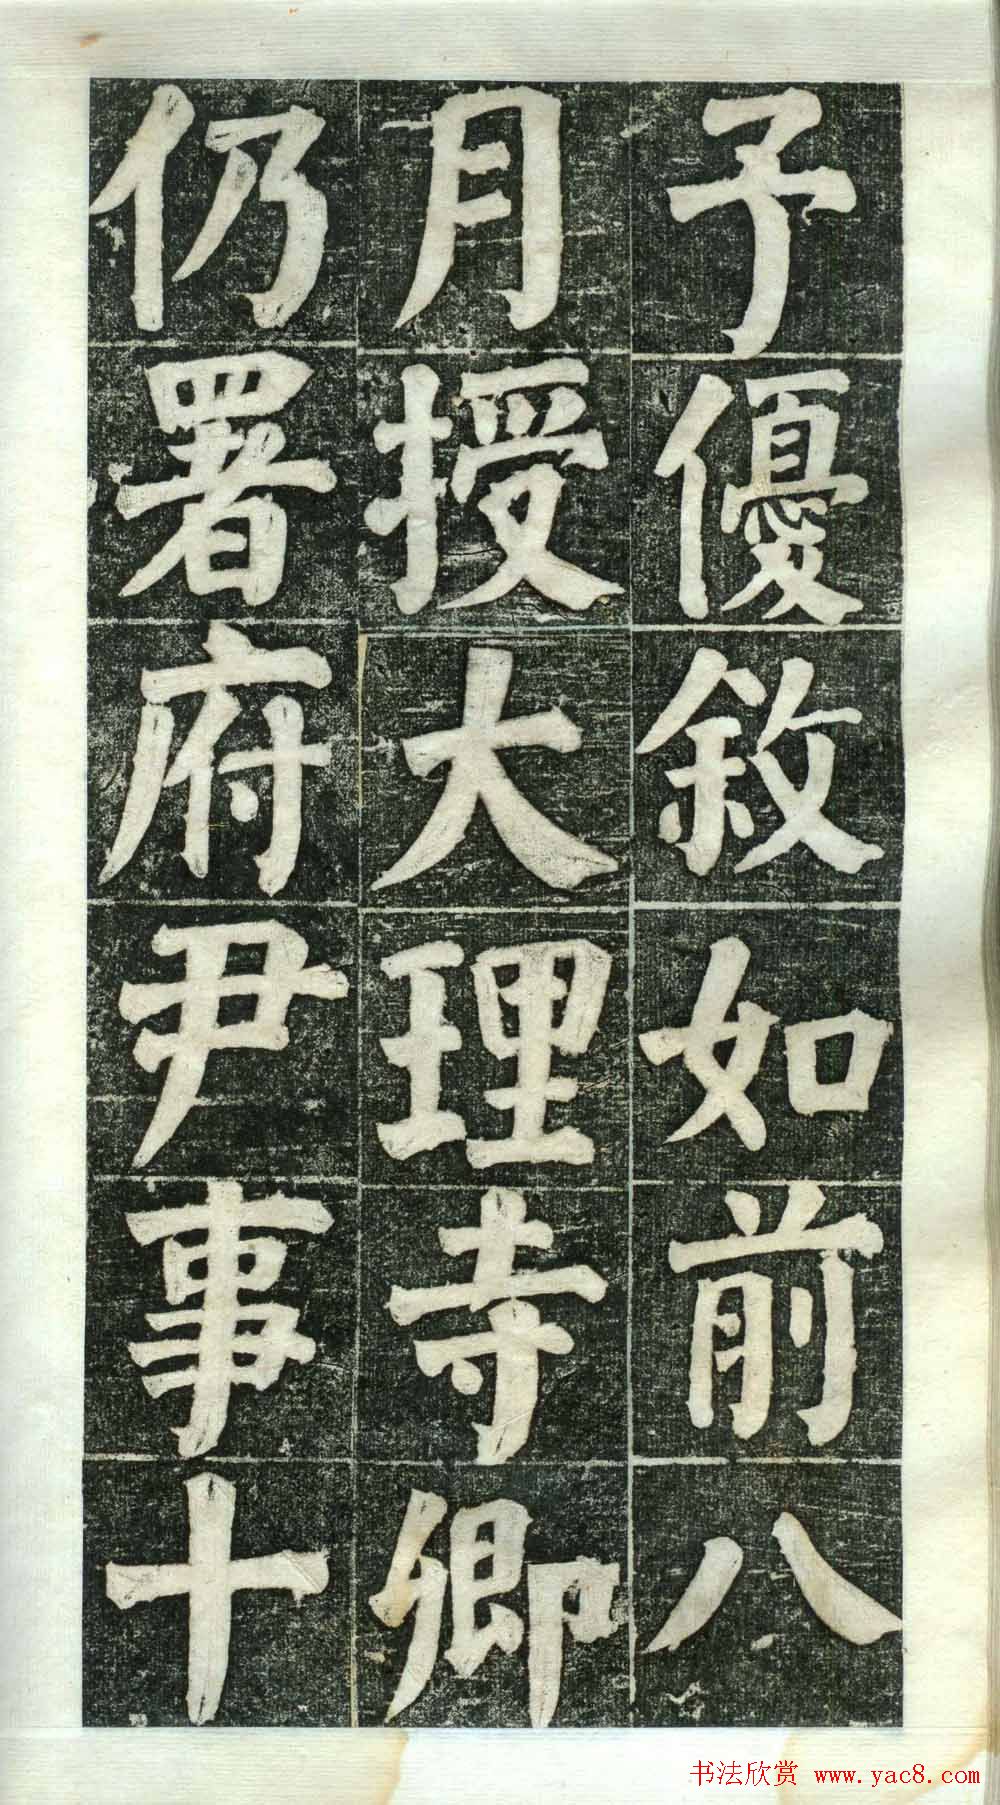 予優敘如前八
月授大理寺卿
仍署府尹事十
书法欣赏 www.yac8.com